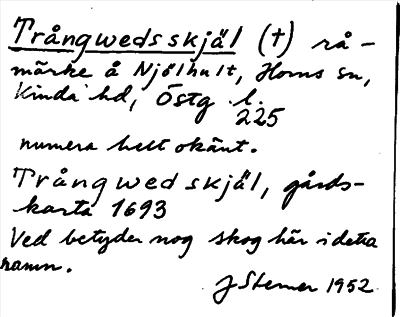 Trångwedsskjäl (†) rå-
märke å Njölhult, Horns sn,
Kinda hd, Östg. l.
225
numera helt okänt.
Trångwedskjäl, gårds-
karta 1693
Ved betyder nog skog här i detta
namn.
J Sterner 1952